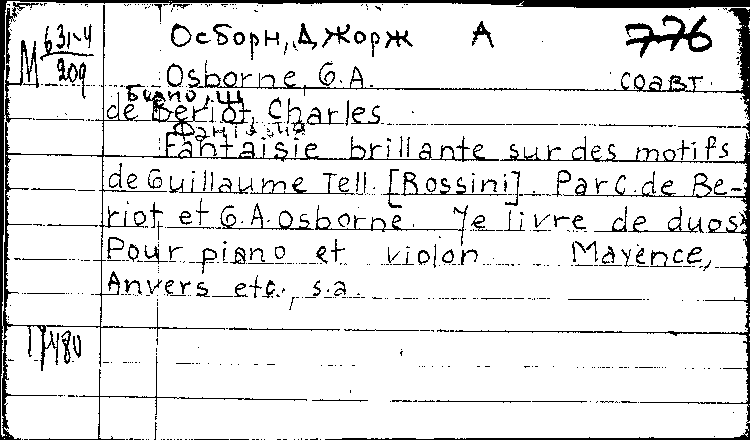 М 631-4/209
Осборн, Джорж А 776
Osborne, G.A. соавт.
de Bériot, Charles
Фантазия
Fantaisie brillante sur des motifs
de Guillaume Tell. [Rossini]. Par C. de Be-
riot et G.A. Osborne. 7e livre de duos
Pour piano et violon Mayence,
Anvers etc., s.a.
17480